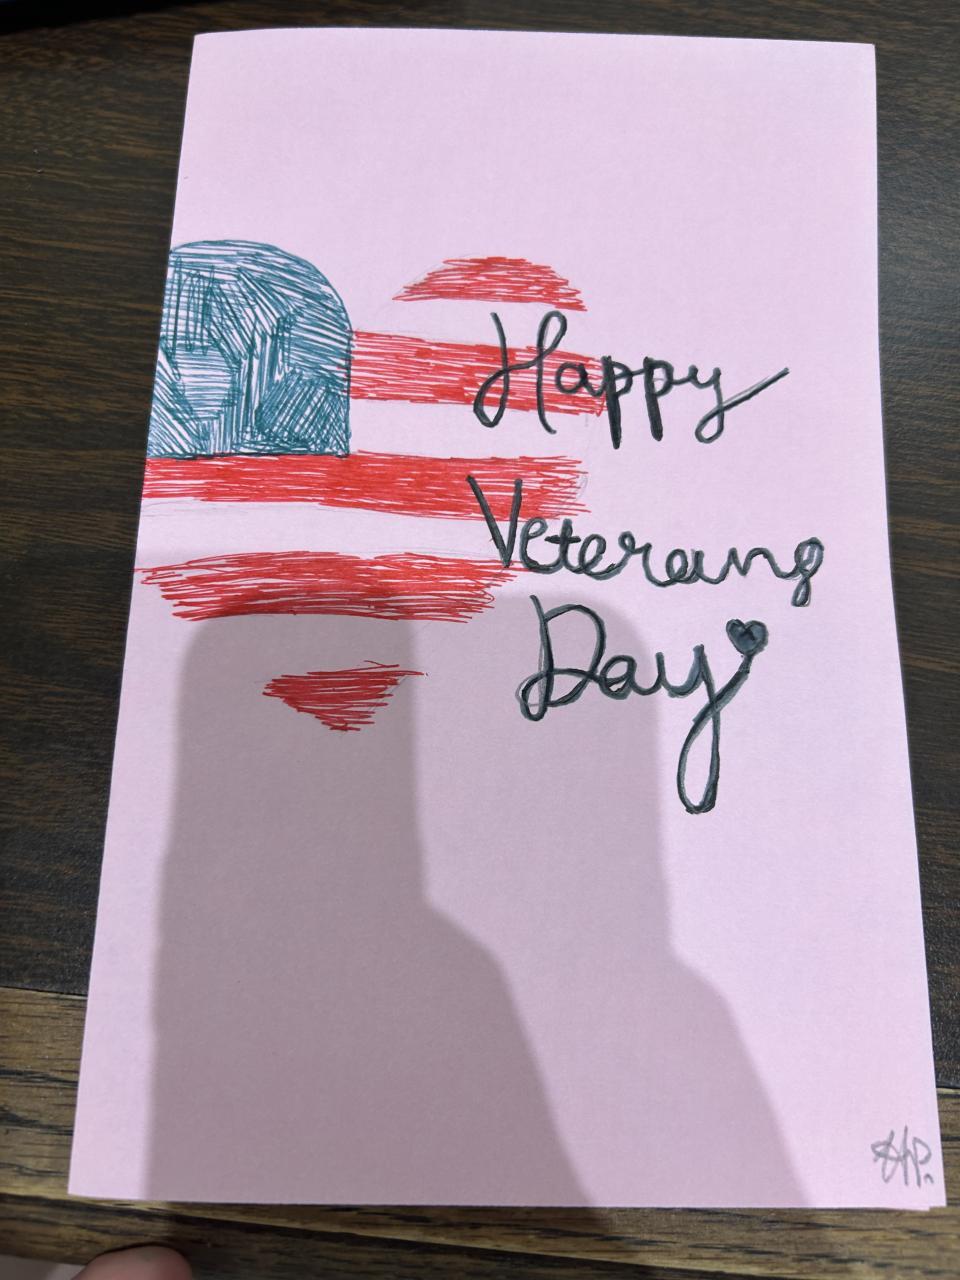 Happy
Veterans
Day